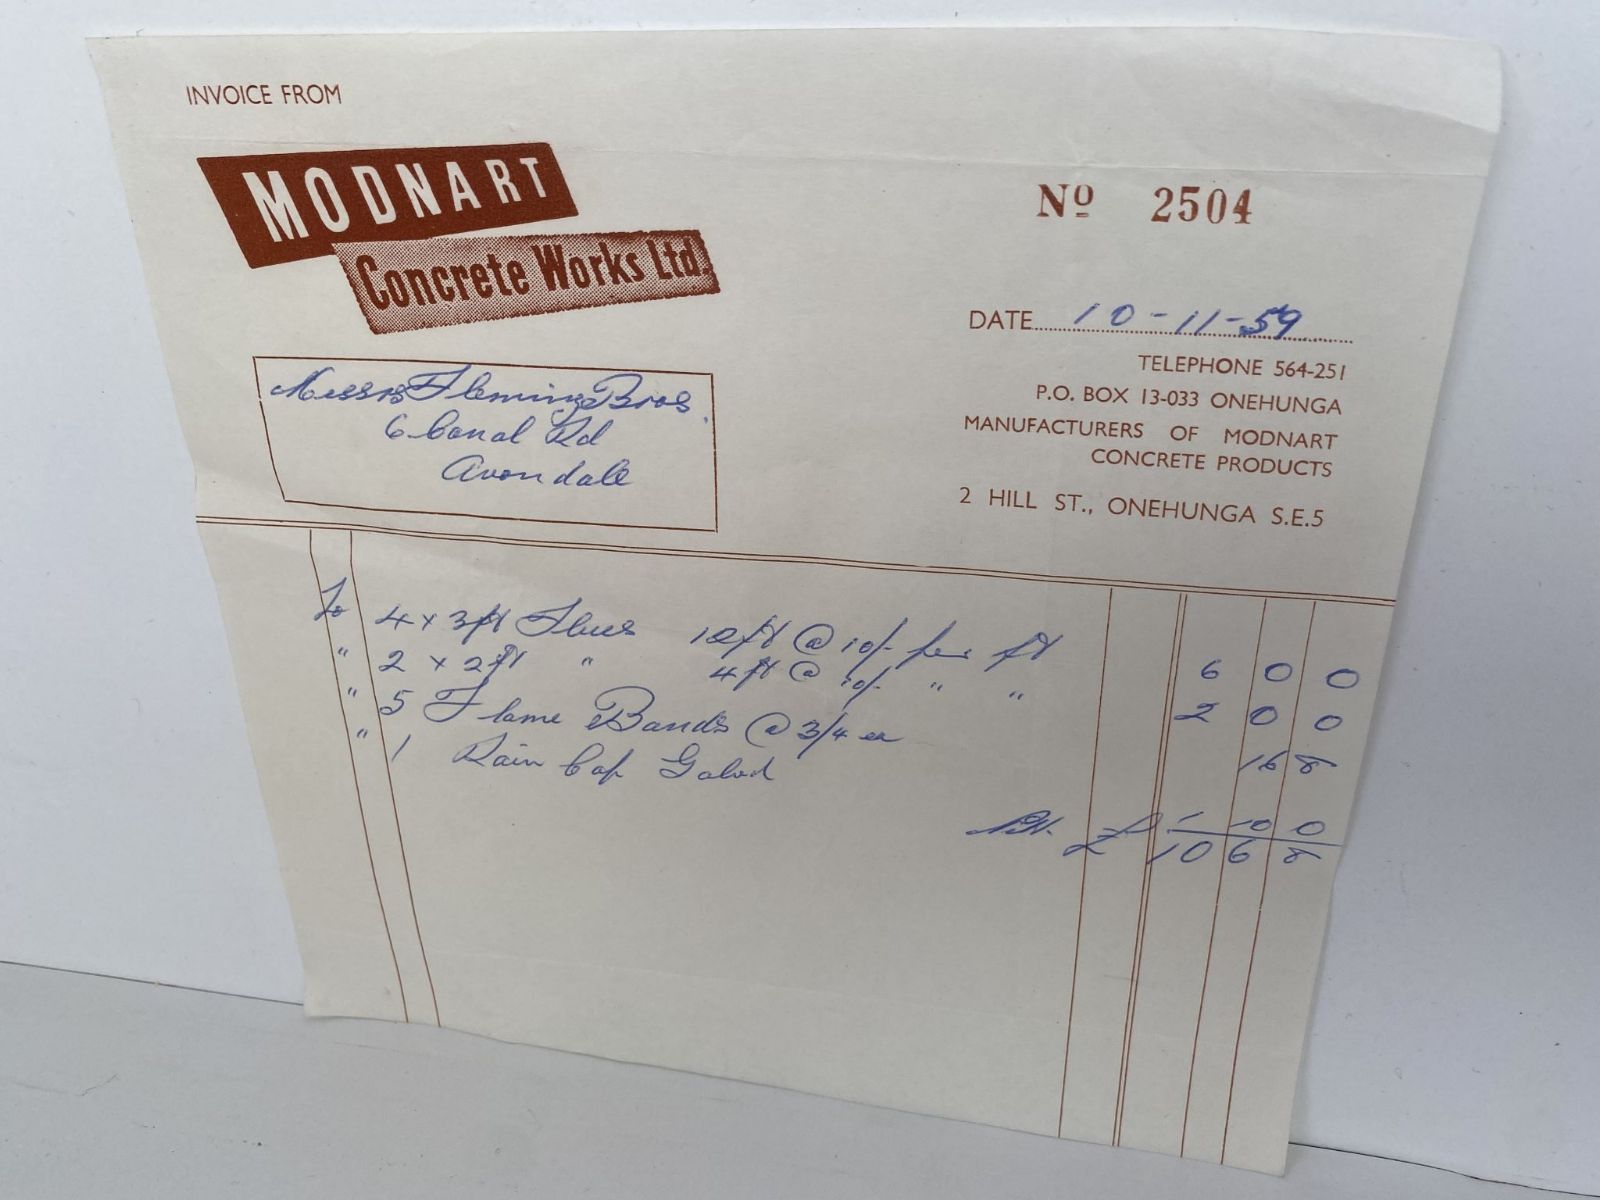 INVOICE FROM
MODNART
Concrete Works Ltd.
Nº 2504
DATE 10-11-59
TELEPHONE 564-251
P.O. BOX 13-033 ONEHUNGA
MANUFACTURERS OF MODNART
CONCRETE PRODUCTS
2 HILL ST., ONEHUNGA S.E.5
Messrs Fleming Bros.
6 Canal Rd
Avondale
To 4 x 3ft Flues 12ft @ 10/- per ft 6 0 0
" 2 x 2ft " 4ft @ 10/- " " 2 0 0
" 5 Flame Bands @ 3/4 ea 16 8
" 1 Rain Cap Galvd 1 10 0
£ 10 6 8